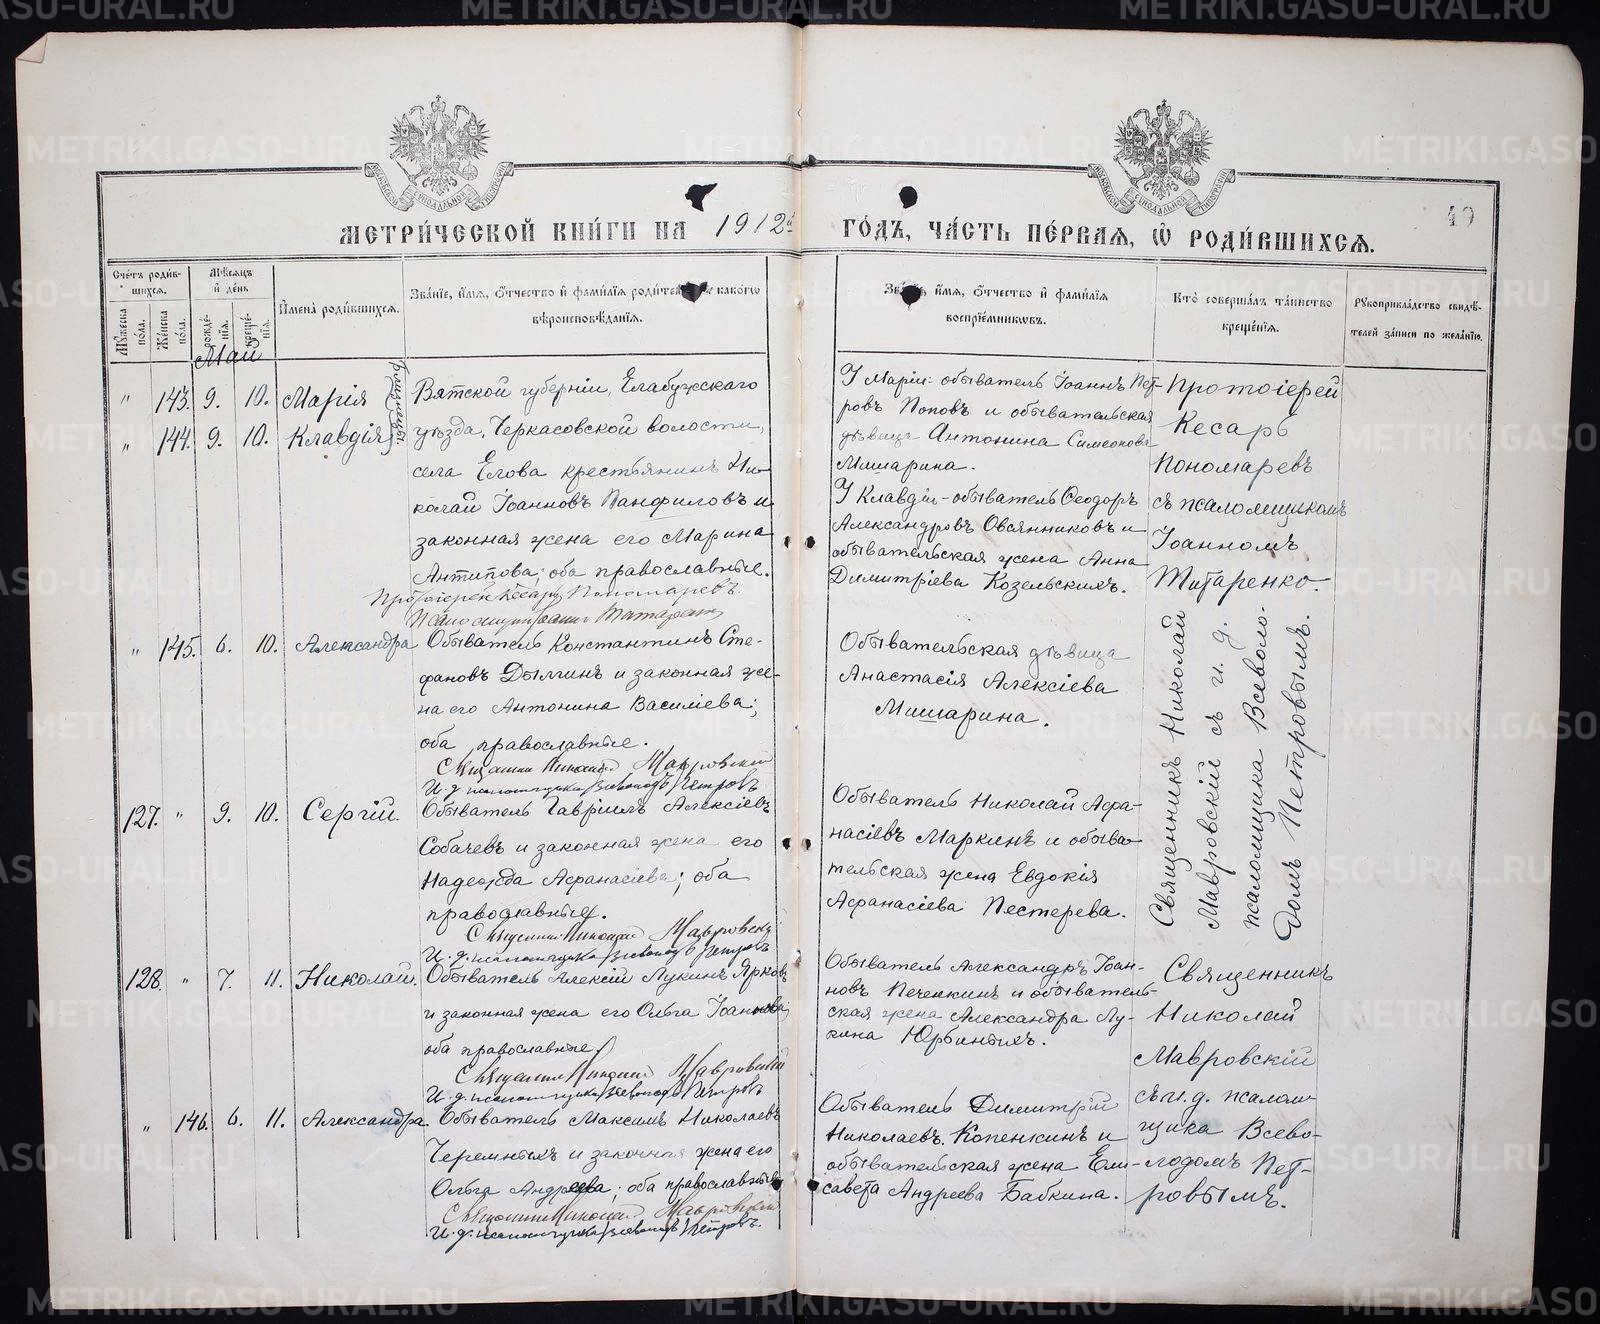 METRIKI.GASO-URAL.RU
49
МЕТРИ́ЧЕСКОЙ КНИ́ГИ НА 1912й ГО́ДЪ, ЧА́СТЬ ПЕ́РВАЯ, Ѡ РОДИ́ВШИХСЯ.
Сче́тъ роди́в-
шихся.
Му́жеска
по́ла.
Же́нска
по́ла.
Мѣ́сяцъ
и де́нь
рожде́-
нія.
креще́-
нія.
Имена̀ роди́вшихся.
Зва́ніе, и́мя, о́тчество и фами́лія роди́телей и како́гѡ
вѣроисповѣ́данія.
Зва́ніе, и́мя, о́тчество и фами́лія
воспріе́мниковъ.
Кто̀ соверша́лъ та́инство
креще́нія.
Рукоприкла́дство свидѣ́-
телей за́писи по жела́нію.
Май
" 143. 9. 10. Марія
" 144. 9. 10. Клавдія
близнецы.
Вятской губерніи, Елабужскаго
уѣзда, Черкасовской волости,
села Елова крестьянинъ Ни-
колай Іоанновъ Панфиловъ и
законная жена его Марина
Антипова; оба православные.
Протоіерей Кесарь Пономаревъ
Псаломщикъ Іоаннъ Титаренко
У Маріи- обыватель Іоаннъ Пет-
ровъ Поповъ и обывательская
дѣвица Антонина Симеонова
Мишарина.
У Клавдіи- обыватель Ѳеодоръ
Александровъ Овсянниковъ и
обывательская жена Анна
Димитріева Козельскихъ.
Протоіерей
Кесарь
Пономаревъ
съ псаломщикомъ
Іоанномъ
Титаренко.
" 145. 6. 10. Александра
Обыватель Константинъ Сте-
фановъ Дылгинъ и законная же-
на его Антонина Василіева;
оба православные.
Священникъ Николай Мавровскій
И. д. псаломщика Всеволодъ Петровъ
Обывательская дѣвица
Анастасія Алексіева
Мишарина.
Священникъ Николай
Мавровскій съ и. д.
псаломщика Всеволо-
домъ Петровымъ.
127. " 9. 10. Сергій.
Обыватель Гавріилъ Алексіевъ
Собачевъ и законная жена его
Надежда Аѳанасіева; оба
православные.
Священникъ Николай Мавровскій
И. д. псаломщика Всеволодъ Петровъ
Обыватель Николай Аѳа-
насіевъ Маркинъ и обыва-
тельская жена Евдокія
Аѳанасіева Пестерева.
128. " 7. 11. Николай.
Обыватель Алексій Лукинъ Ярковъ
и законная жена его Ольга Іоаннова;
оба православные.
Священникъ Николай Мавровскій
И. д. псаломщика Всеволодъ Петровъ
Обыватель Александръ Іоан-
новъ Печенкинъ и обыватель-
ская жена Александра Лу-
кина Юрбиныхъ.
Священникъ
Николай
Мавровскій
съ и. д. псалом-
щика Всево-
лодомъ Пет-
ровымъ.
" 146. 6. 11. Александра.
Обыватель Максимъ Николаевъ
Черемныхъ и законная жена его
Ольга Андреева; оба православные
Священникъ Николай Мавровскій
И. д. псаломщика Всеволодъ Петровъ.
Обыватель Димитрій
Николаевъ Копенкинъ и
обывательская жена Ели-
савета Андреева Бабкина.